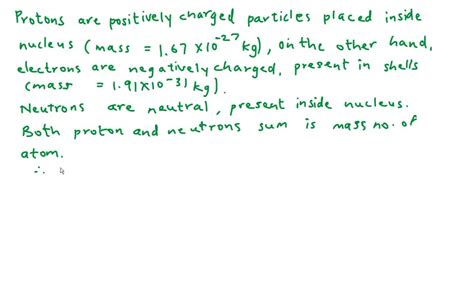 Protons are positively charged particles placed inside
nucleus (mass = 1.67 × 10⁻²⁷ kg), on the other hand,
electrons are negatively charged, present in shells
(mass = 1.91×10⁻³¹ kg).
Neutrons are neutral, present inside nucleus.
Both proton and neutrons sum is mass no. of
atom.
∴